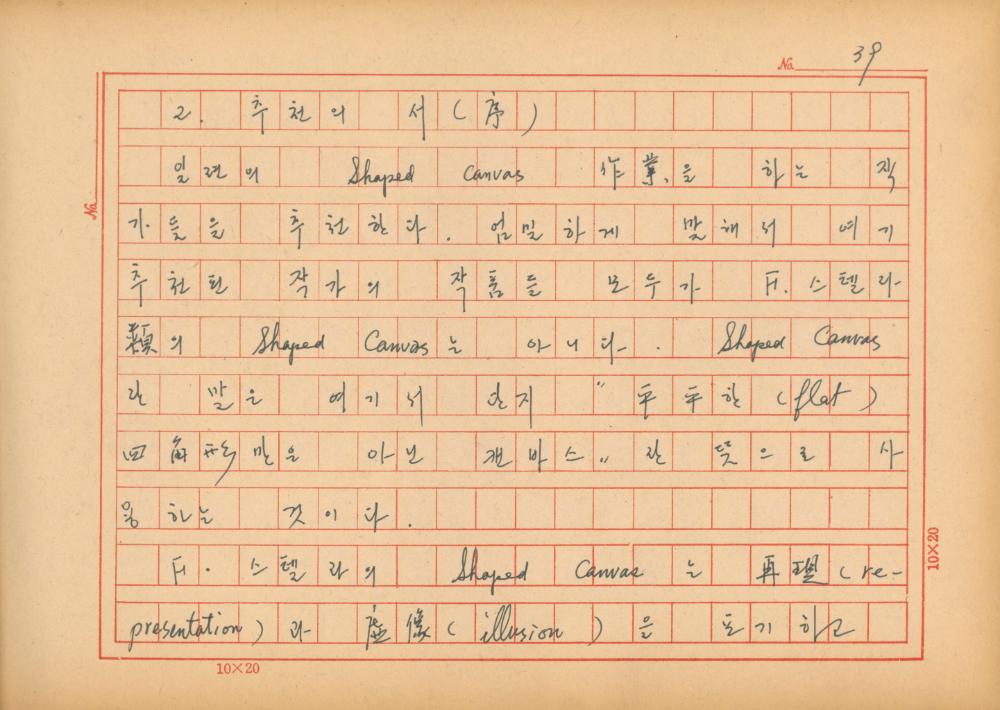 No 39
2. 추천의 서(序)
일련의 Shaped canvas 作業을 하는 작
가들을 추천한다. 엄밀하게 말해서 여기
추천된 작가의 작품들 모두가 F. 스텔라
類의 Shaped Canvas는 아니다. Shaped Canvas
란 말은 여기서 단지 "平平한(flat)
四角形만은 아닌 캔바스" 란 뜻으로 사
용하는 것이다.
F. 스텔라의 Shaped Canvas는 再現(re-
presentation)과 虛像(illusion)을 포기하고
No
10×20
10×20